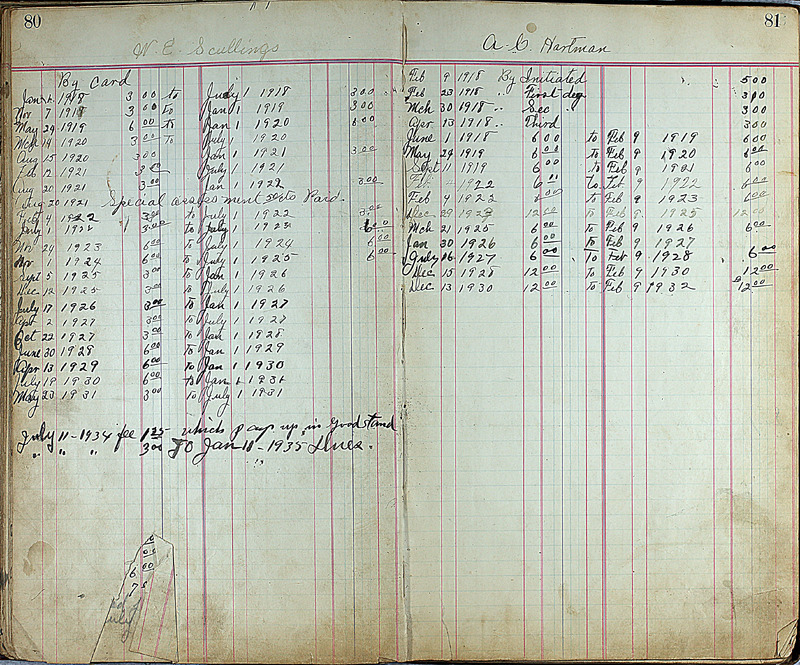 80
W. E. Scullings
By Card
1918 3 00 to July 1 1918 3.00
Nov 7 1918 3 00 to Jan 1 1919 3.00
May 29 1919 6 00 to Jan 1 1920 6.00
Mch 19 1920 3 00 to July 1 1920
Aug 15 1920 3 00 Jan 1 1921 3.00
Feb 12 1921 3 00 July 1 1921
Aug 20 1921 3 00 Jan 1 1922 3.00
Aug 20 1921 Special assessment Paid.
4 1922 3 00 to July 1 1922 3.00
July 1 3 00 to July 1 6 00
Nov 24 1923 6 00 to July 1 1924 6 00
Nov 1 1924 6 00 to July 1 1925 6 00
Sept 5 1925 3 00 to Jan 1 1926
Dec 12 1925 3 00 to July 1 1926
July 17 1926 3 00 to Jan 1 1927
Apr 2 1927 3 00 to July 1 1927
Oct 22 1927 3 00 to Jan 1 1928
June 30 1928 6 00 to Jan 1 1929
Apr 13 1929 6 00 to Jan 1 1930
July 19 1930 6 00 to Jan 1 1931
May 23 1931 3 00 to July 1 1931
July 11-1934 fee 1 25 which pays up in Good stand
" " " 3 00 To Jan 1-1935 Dues.
00
6 00
July
81
A. C. Hartman
Feb 9 1918 By Initiated 5 00
Feb 23 1918 " First deg 3 00
Mch 30 1918 " Sec " 3 00
Apr 13 1918 " Third 3 00
June 1 1918 6 00 to Feb 9 1919 6 00
May 29 1919 6 00 to Feb 9 1920 6 00
Sept 11 1919 6 00 to Feb 9 1921 6 00
Feb 4 1922 6 00 to Feb 9 1922 6 00
Feb 4 1922 6 00 to Feb 9 1923 6 00
Dec 29 12 00 to Feb 9 1925 12 00
Mch 21 1925 6 00 to Feb 9 1926 6 00
Jan 30 1926 6 00 to Feb 9 1927
July 16 1927 6 00 To Feb 9 1928 6 00
Dec 15 1928 12 00 to Feb 9 1930 12 00
Dec 13 1930 12 00 to Feb 9 1932 12 00